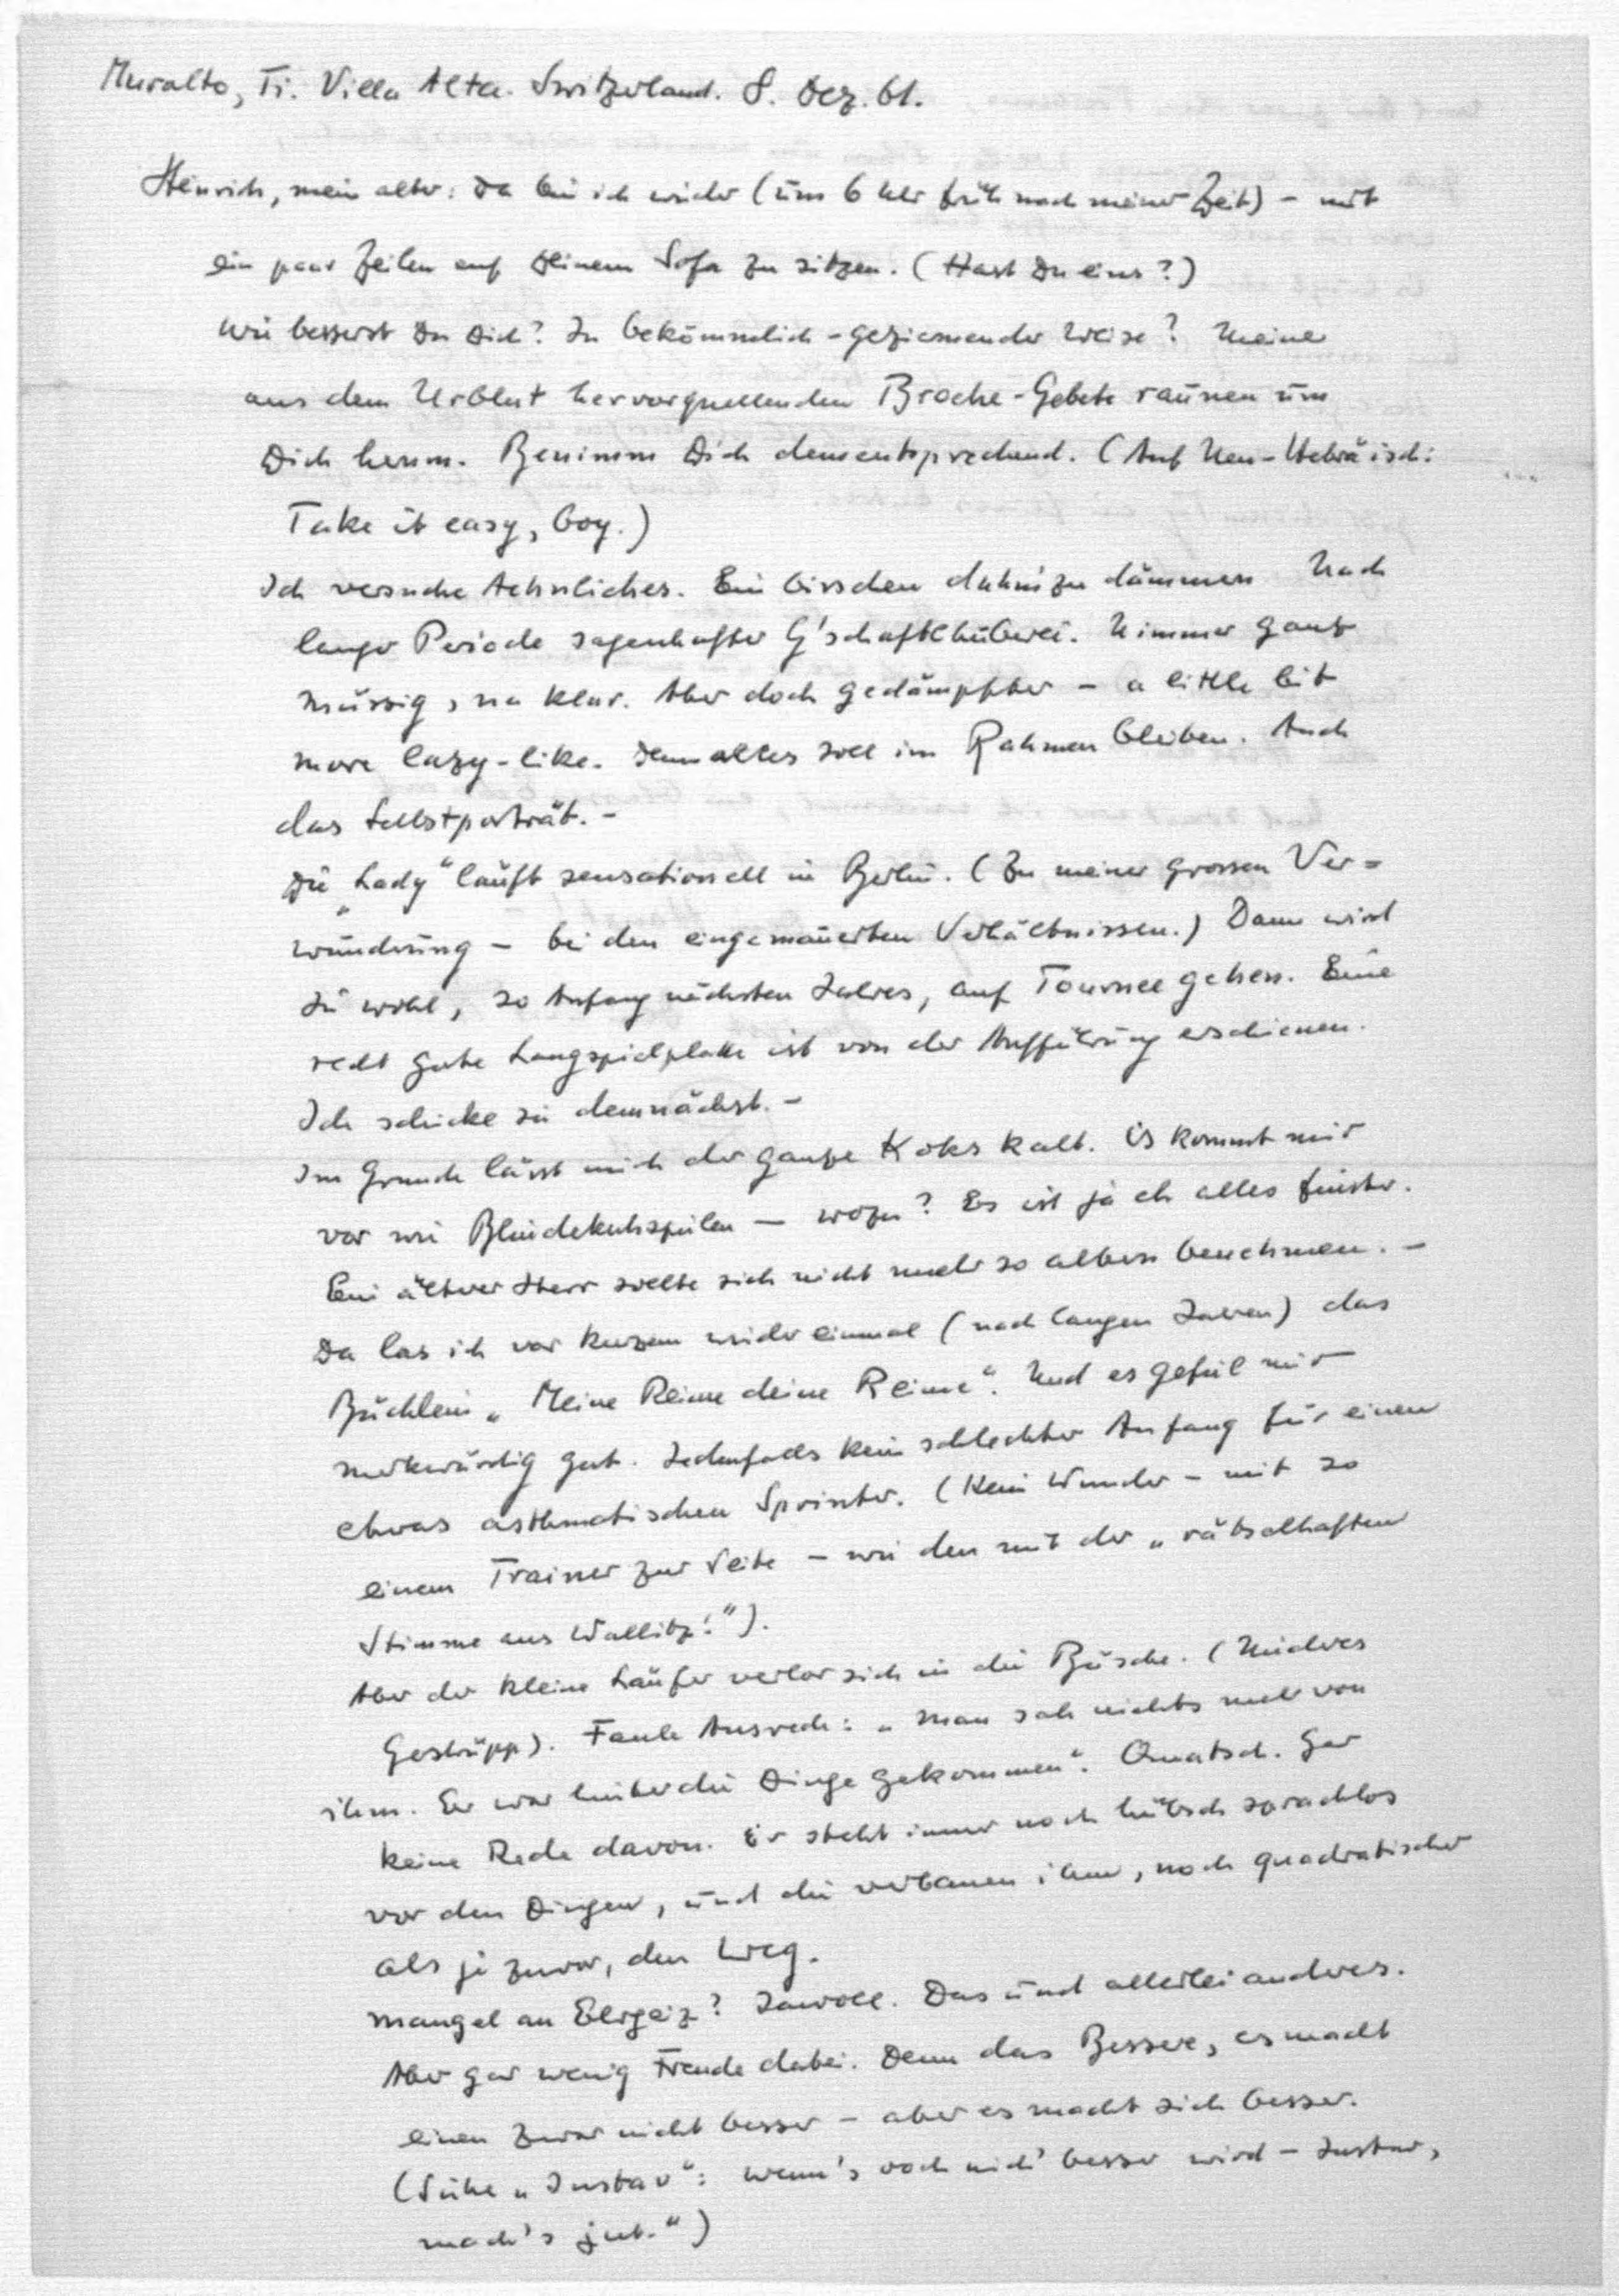 Muralto, Ti. Villa Alta. Switzerland. 8. Dez. 61.
Heinrich, mein alter: Da bin ich wieder (um 6 Uhr früh nach meiner Zeit) – mit
ein paar Zeilen auf Deinem Sofa zu sitzen. (Hast Du eins?)
Wie besserst Du Dich? In bekömmlich-geziemender Weise? Meine
aus dem Urblut hervorquellenden Broche-Gebete raunen um
Dich herum. Benimm Dich dementsprechend. (Auf Neu-Hebräisch:
Take it easy, boy.)
Ich versuche Aehnliches. Ein bisschen dahinzudämmern. Nach
langer Periode sagenhafter G'schaftlhuberei. Nimmer ganz
müssig, na klar. Aber doch gedämpfter – a little bit
more lazy-like. Denn alles soll im Rahmen bleiben. Auch
das Selbstporträt. –
Die „Lady“ läuft sensationell in Berlin. (Zu meiner grossen Ver=
wunderung – bei den eingemauerten Verhältnissen.) Dann wird
sie wohl, so Anfang nächsten Jahres, auf Tournee gehen. Eine
recht gute Langspielplatte ist von der Aufführung erschienen.
Ich schicke sie demnächst. –
Im Grunde lässt mich der ganze Koks kalt. Es kommt mir
vor wie Blindekuhspielen – wozu? Es ist ja eh alles finster.
Ein älterer Herr sollte sich nicht mehr so albern benehmen. –
Da las ich vor kurzem wieder einmal (nach langen Jahren) das
Büchlein „Meine Reime deine Reime“. Und es gefiel mir
merkwürdig gut. Jedenfalls kein schlechter Anfang für einen
etwas asthmatischen Sprinter. (Kein Wunder – mit so
einem Trainer zur Seite – wie den mit der „rätselhaften
Stimme aus Wallitz!“).
Aber der kleine Läufer verlor sich in die Büsche. (Niederes
Gestrüpp). Faule Ausrede: „Man sah nichts mehr von
ihm. Er war hinter die Dinge gekommen“. Quatsch. Gar
keine Rede davon. Er steht immer noch hübsch sprachlos
vor den Dingen, und die verbauen ihm, noch quadratischer
als je zuvor, den Weg.
Mangel an Ehrgeiz? Jawoll. Das und allerlei anderes.
Aber gar wenig Freude dabei. Denn das Bessere, es macht
einen zwar nicht besser – aber es macht sich besser.
(Siehe „Justav“: Wenn's ooch nich' besser wird – Justav,
mach's jut.“)